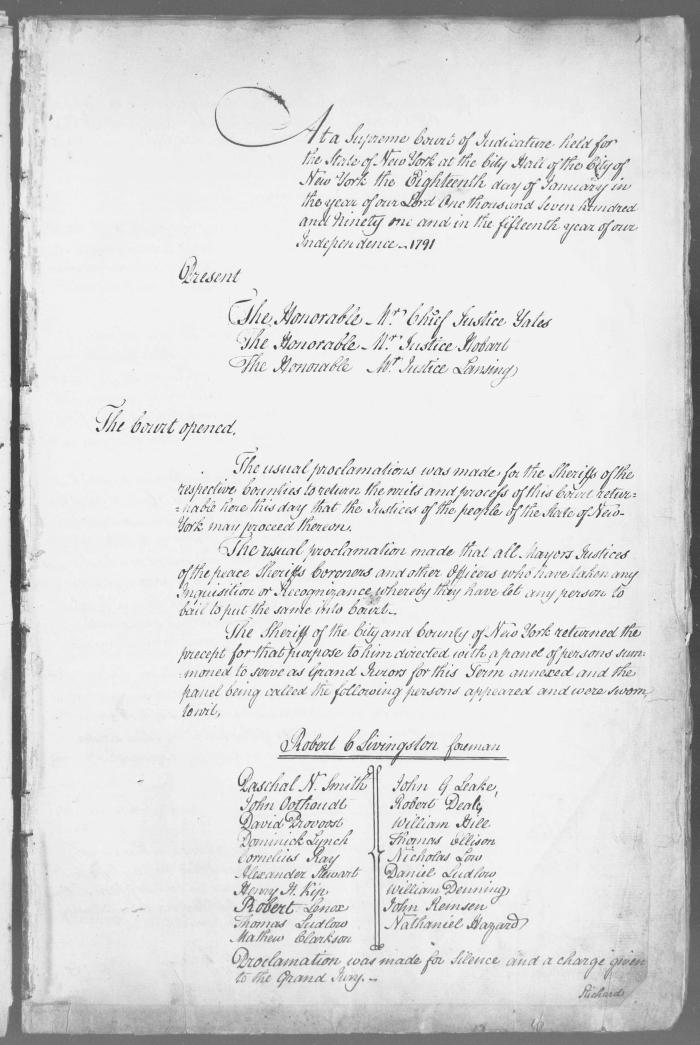 At a Supreme Court of Judicature held for
the State of New York at the City Hall of the City of
New York the Eighteenth day of January in
the year of our Lord One thousand Seven hundred
and Ninety one and in the fifteenth year of our
Independence - 1791
Present
The Honorable Mr Chief Justice Yates
The Honorable Mr Justice Hobart
The Honorable Mr Justice Lansing
The Court opened.
The usual proclamations was made for the Sheriffs of the
respective Counties to return the writs and process of this Court retur=
=nable here this day that the Justices of the people of the State of New-
York may proceed thereon.
The usual proclamation made that all Mayors Justices
of the peace Sheriffs Coronors and other Officers who have taken any
Inquisition or Recognizance whereby they have let any person to
bail to put the same into Court -
The Sheriff of the City and County of New York returned the
precept for that purpose to him directed with a panel of persons sum-
moned to serve as Grand Jurors for this Term annexed and the
panel being called the following persons appeared and were sworn,
to wit,
Robert C Livingston foreman
Paschal N. Smith
John Oothoudt
David Provoost
Dominick Lynch
Cornelius Ray
Alexander Stewart
Henry H. Kip
Robert Lenox
Thomas Ludlow
Mathew Clarkson
John G Leake,
Robert Dealy
William Hill
Thomas Ellison
Nicholas Low
Daniel Ludlow
William Denning
John Remsen
Nathaniel Hazard
Proclamation was made for Silence and a charge given
to the Grand Jury. -
Richard